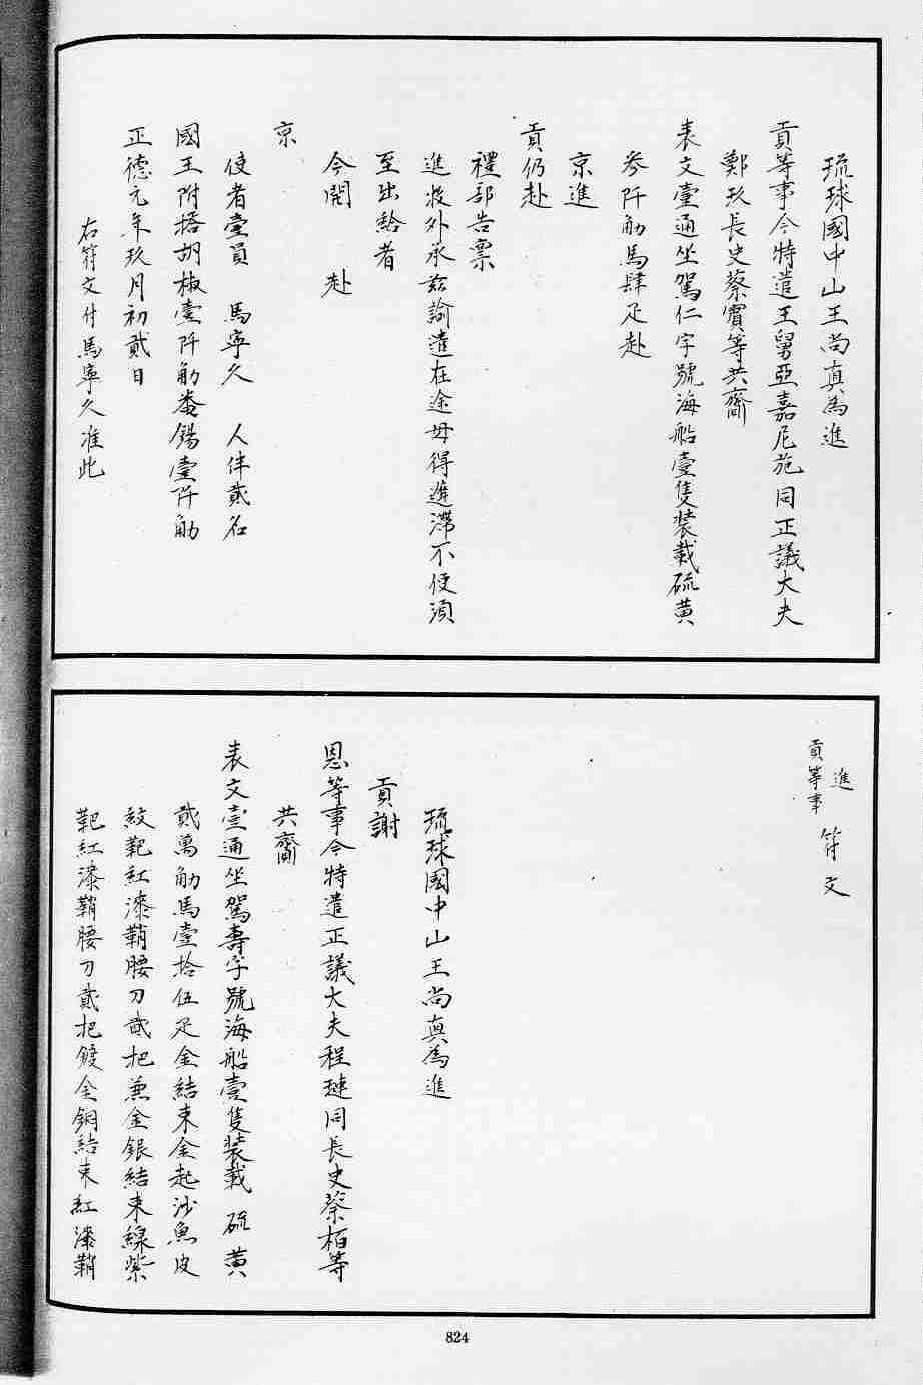 琉球國中山王尚真為進
貢等事今特遣王舅亞嘉尼施同正議大夫
鄭玖長史蔡賓等共齎
表文壹通坐駕仁字號海船壹隻裝載硫黃
參阡觔馬肆疋赴
京進
貢仍赴
禮部告稟
進收外承玆諭遣在途毋得遲滯不便須
至出給者
今開 赴
京
使者壹員 馬寧久 人伴貳名
國王附搭胡椒壹阡觔番錫壹阡觔
正德元年玖月初貳日
右符文付馬寧久准此
進
貢等事 符文
琉球國中山王尚真為進
貢謝
恩等事今特遣正議大夫程璉同長史蔡栢等
共齎
表文壹通坐駕壽字號海船壹隻裝載硫黃
貳萬觔馬壹拾伍疋金結束金起沙魚皮
靶紅漆鞘腰刀貳把兼金銀結束線紫
靶紅漆鞘腰刀貳把鍍金銅結束紅漆鞘
824